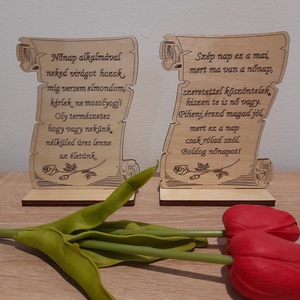 Nőnap alkalmával
neked virágot hozok,
míg versem elmondom,
kérlek, ne mosolyogj!
Oly természetes
hogy vagy nekünk,
nélküled üres lenne
az életünk.
Szép nap ez a mai,
mert ma van a nőnap,
szeretettel köszöntelek,
hiszen te is nő vagy.
Pihenj, érezd magad jól,
mert ez a nap
csak rólad szól.
Boldog nőnapot!